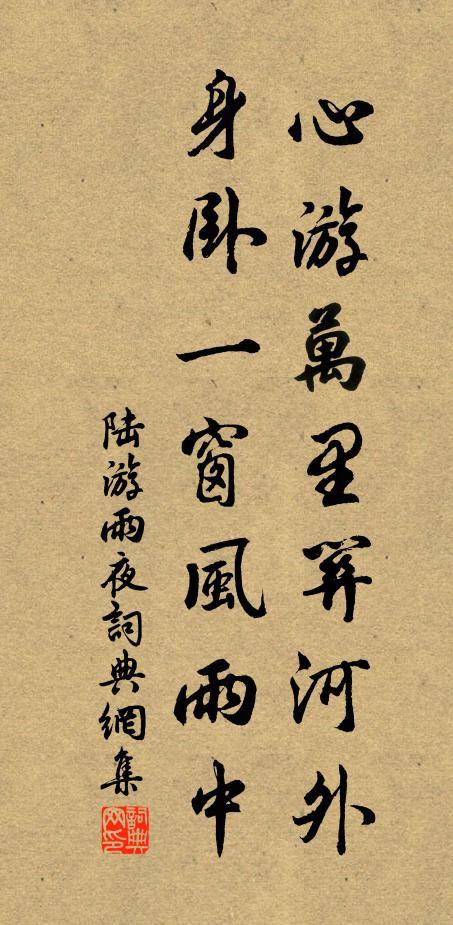 心游萬里關河外
身卧一窗風雨中
陆游雨夜詞典網集
詞典网印